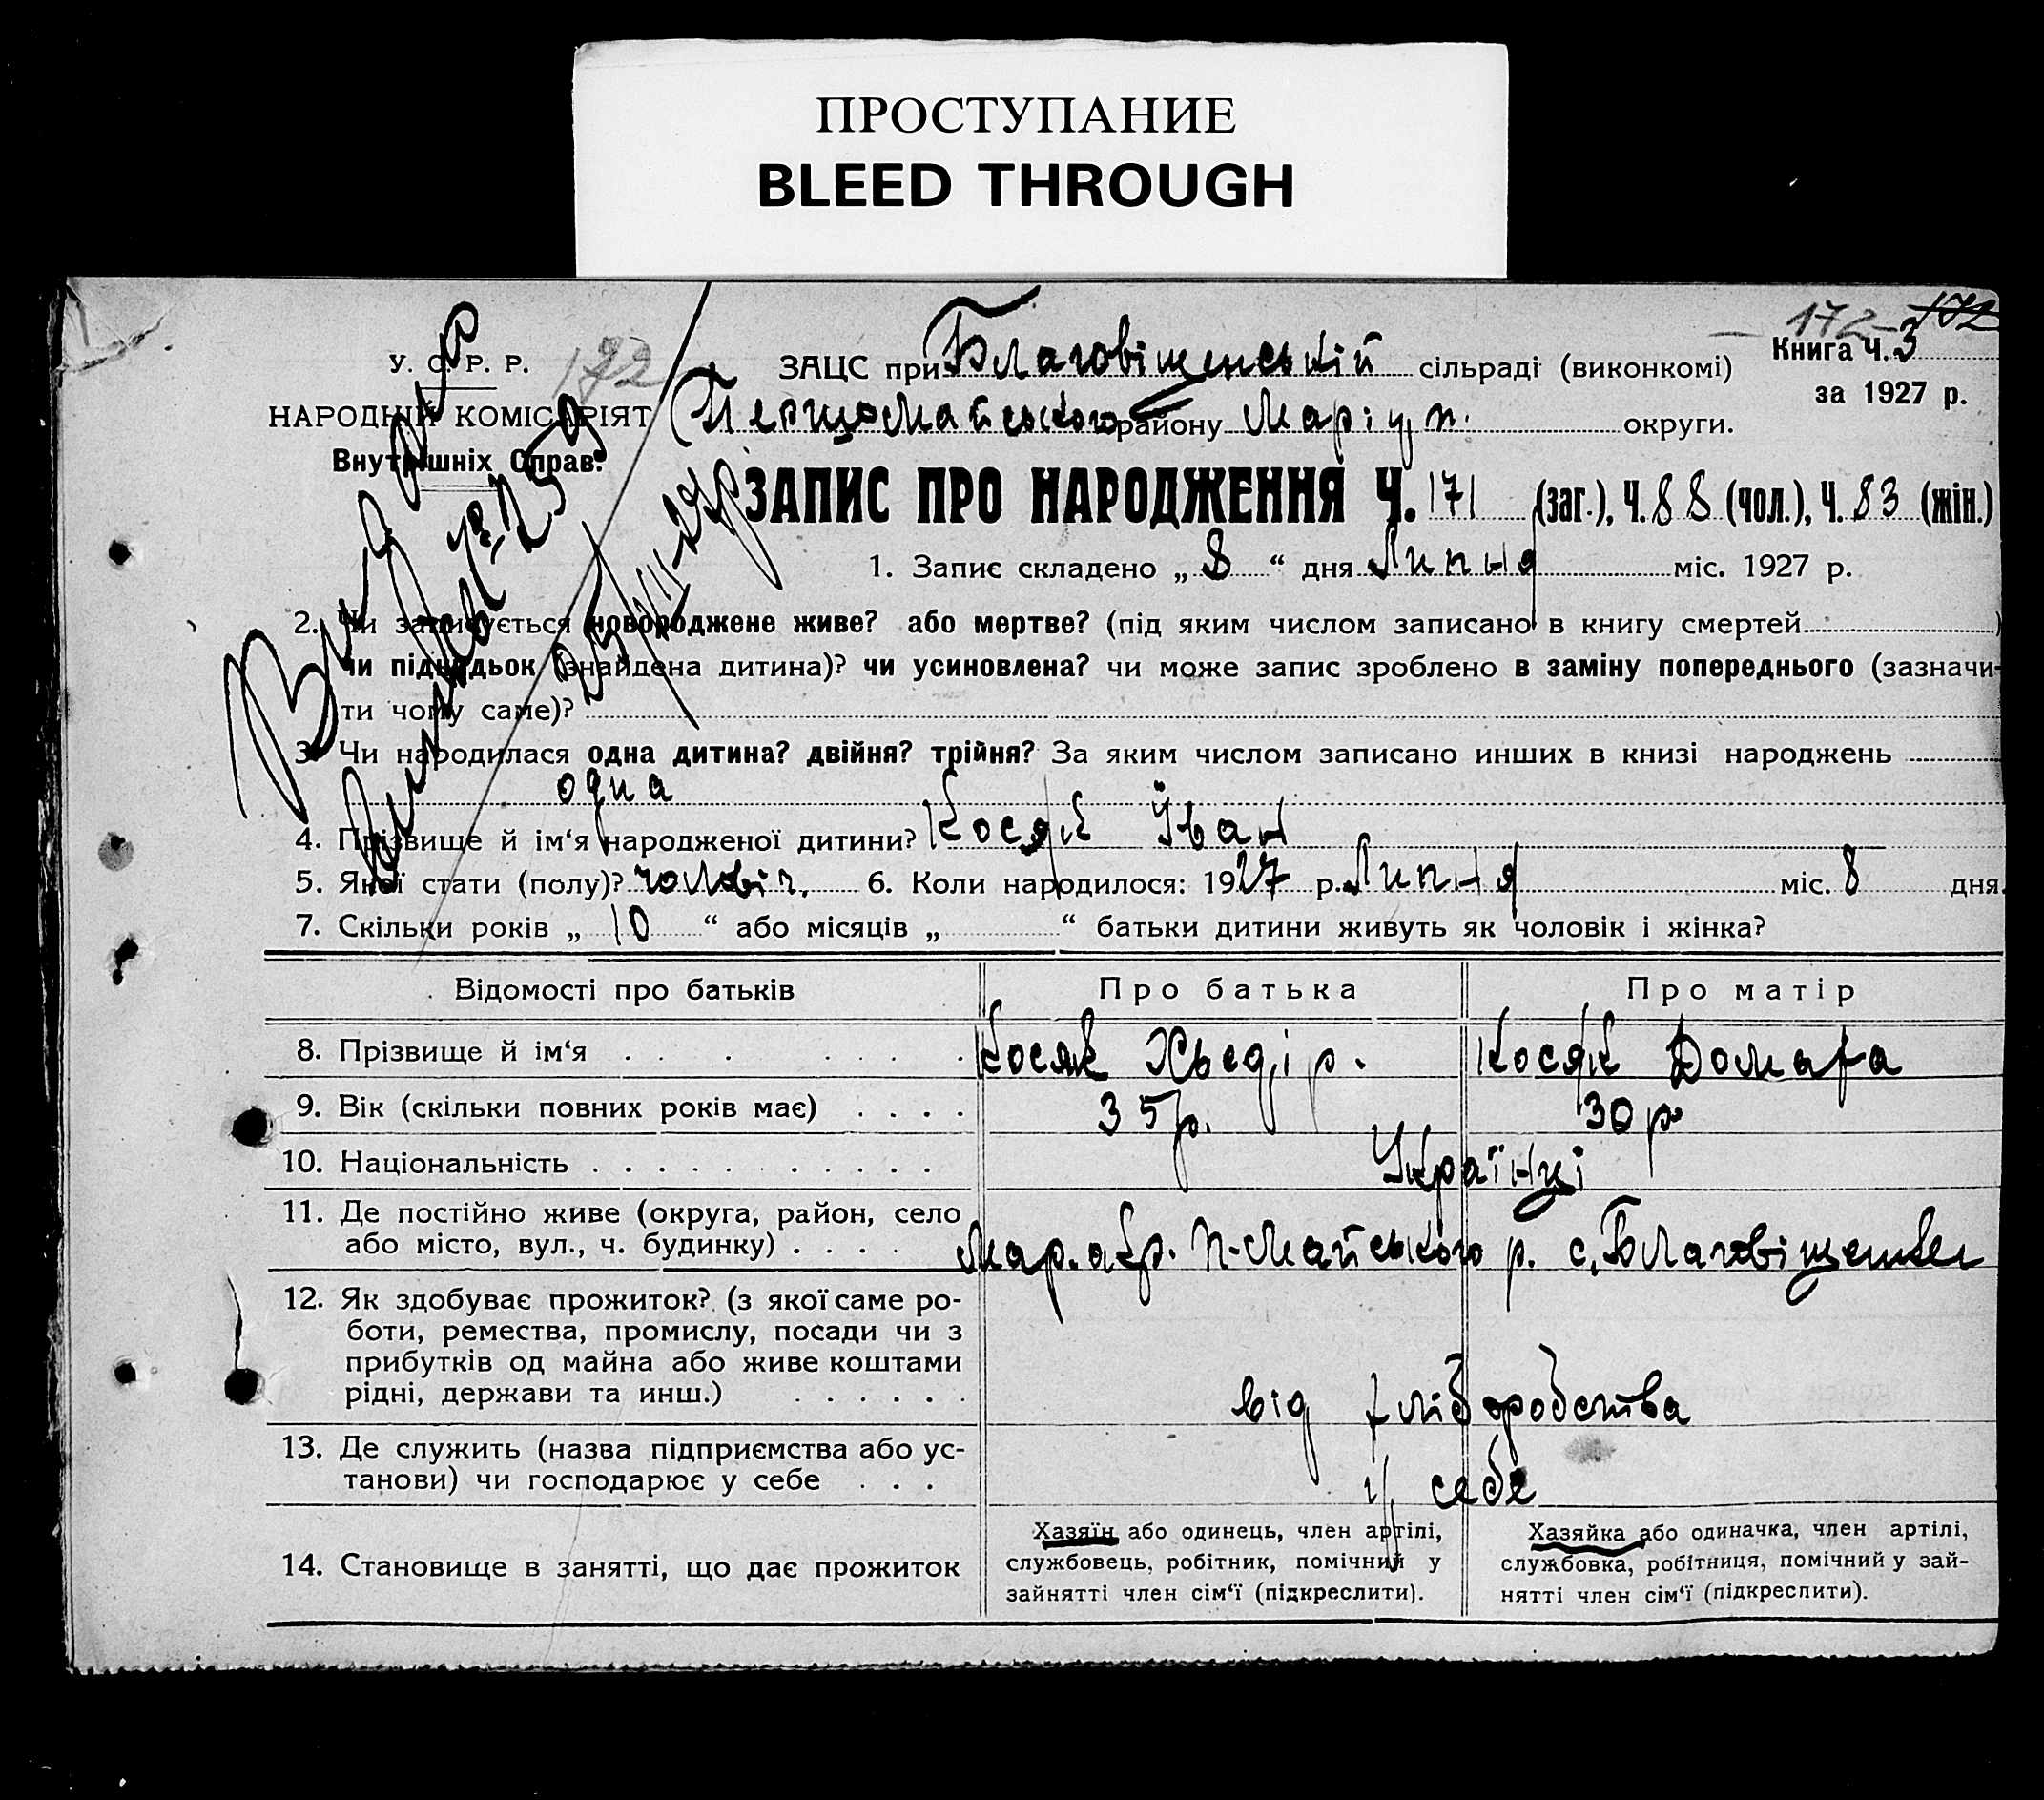 ПРОСТУПАНИЕ
BLEED THROUGH
172
172 172
У. С. Р. Р.
НАРОДНІЙ КОМІСАРІЯТ
Внутрішніх Справ.
ЗАЦС при Благовіщенській сільраді (виконкомі)
Книга Ч. 3
за 1927 р.
Першомайського району Маріуп. округи.
ЗАПИС ПРО НАРОДЖЕННЯ Ч. 171 (заг.), Ч. 88 (чол.), Ч. 83 (жін.)
1. Запис складено „ 8 “ дня Липня міс. 1927 р.
2. Чи записується новороджене живе? або мертве? (під яким числом записано в книгу смертей )
чи підкидьок (знайдена дитина)? чи усиновлена? чи може запис зроблено в заміну попереднього (зазначи-
ти чому саме)?
3. Чи народилася одна дитина? двійня? трійня? За яким числом записано инших в книзі народжень
одна
4. Прізвище й ім‘я народженої дитини? Косяк Іван
5. Якої стати (полу)? чоловіч. 6. Коли народилося: 1927 р. Липня міс. 8 дня.
7. Скільки років „ 10 “ або місяців „ “ батьки дитини живуть як чоловік і жінка?
Відомості про батьків Про батька Про матір
8. Прізвище й ім‘я Косяк Хьедір. Косяк Домаха
9. Вік (скільки повних років має) 35 р. 30 р
10. Національність Українці
11. Де постійно живе (округа, район, село
або місто, вул., ч. будинку) Мар. окр. П-Майського р. с.
12. Як здобуває прожиток? (з якої саме ро-
боти, ремества, промислу, посади чи з
прибутків од майна або живе коштами
рідні, держави та инш.) від хліборобства
13. Де служить (назва підприємства або ус-
танови) чи господарює у себе у себе
14. Становище в занятті, що дає прожиток
Хазяїн або одинець, член артілі,
службовець, робітник, помічний у
зайнятті член сім‘ї (підкреслити).
Хазяйка або одиначка, член артілі,
службовка, робітниця, помічний у зай-
нятті член сім‘ї (підкреслити).